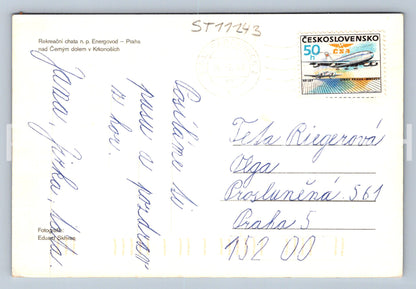 ST11243
Rekreační chata n. p. Energovod – Praha
nad Černým dolem v Krkonoších
ČESKOSLOVENSKO
50
h
ČSA
Posíláme ti
pusu a pozdrav
z hor.
Jana, Jirka,
Teta Riegerová
Olga
Prosluněná 561
Praha 5
152 00
Fotografie
Eduard